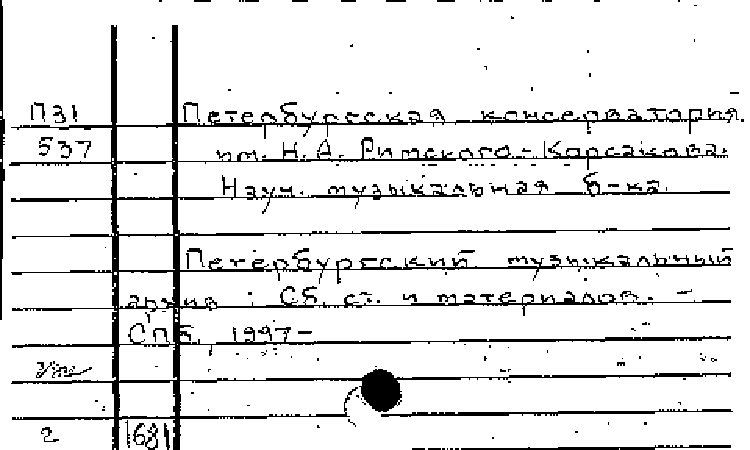 П31 Петербургская консерватория
537 им. Н. А. Римского-Корсакова.
Науч. музыкальная б-ка.
Петербургский музыкальный
архив : Сб. ст. и материалов. -
СПб, 1997-
2 1681